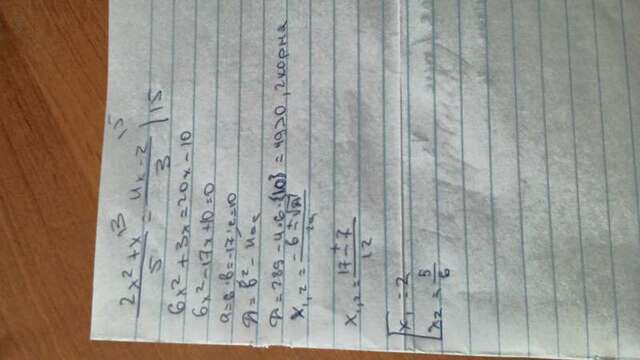 (2x² + x)/5 ^3 = (4x - 2)/3 ^5 | 15
6x² + 3x = 20x - 10
6x² - 17x + 10 = 0
a = 6 в = -17 c = 10
Д = в² - 4ac
Д = 289 - 4·6·(10) = 49>0, 2 корня
x₁,₂ = (-в ± √Д)/2a
x₁,₂ = (17 ± 7)/12
[x₁ = 2
x₂ = 5/6